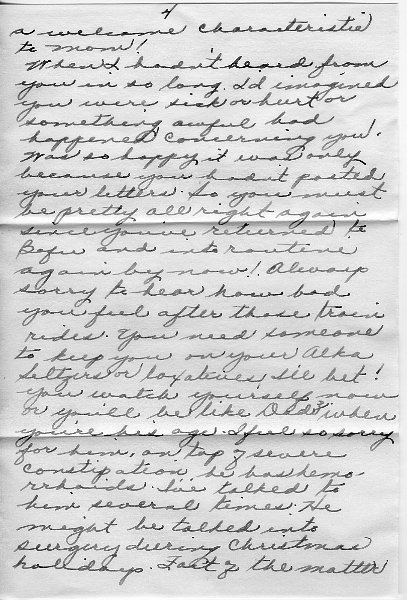 4
a welcome characteristic
to mom!
When I hadn't heard from
you in so long I'd imagined
you were sick or hurt or
something awful had
happened concerning you.
Was so happy it was only
because you hadn't posted
your letters. So you must
be pretty all right again
since you've returned to
Bofu and into routine
again by now! Always
sorry to hear how bad
you feel after those train
rides. You need someone
to keep you on your Alka
Seltzers or laxatives I'll bet!
You watch yourself now
or you'll be like Dad when
you're his age. I feel so sorry
for him, on top of severe
constipation he has hemo-
rrhoids. I've talked to
him several times. He
might be talked into
surgery during Christmas
holidays. Fact of the matter